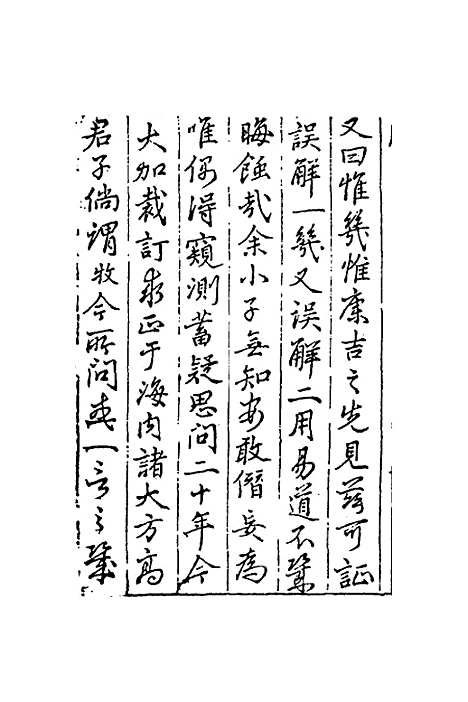 又曰惟幾惟康吉之先見茲可証
誤解一幾又误解二用易道不幾
晦蝕哉余小子無知安敢僭妄為
唯偶得窺測蓄疑思問二十年今
大加裁訂求正于海内諸大方高
君子倘謂牧今所問或一言之幾